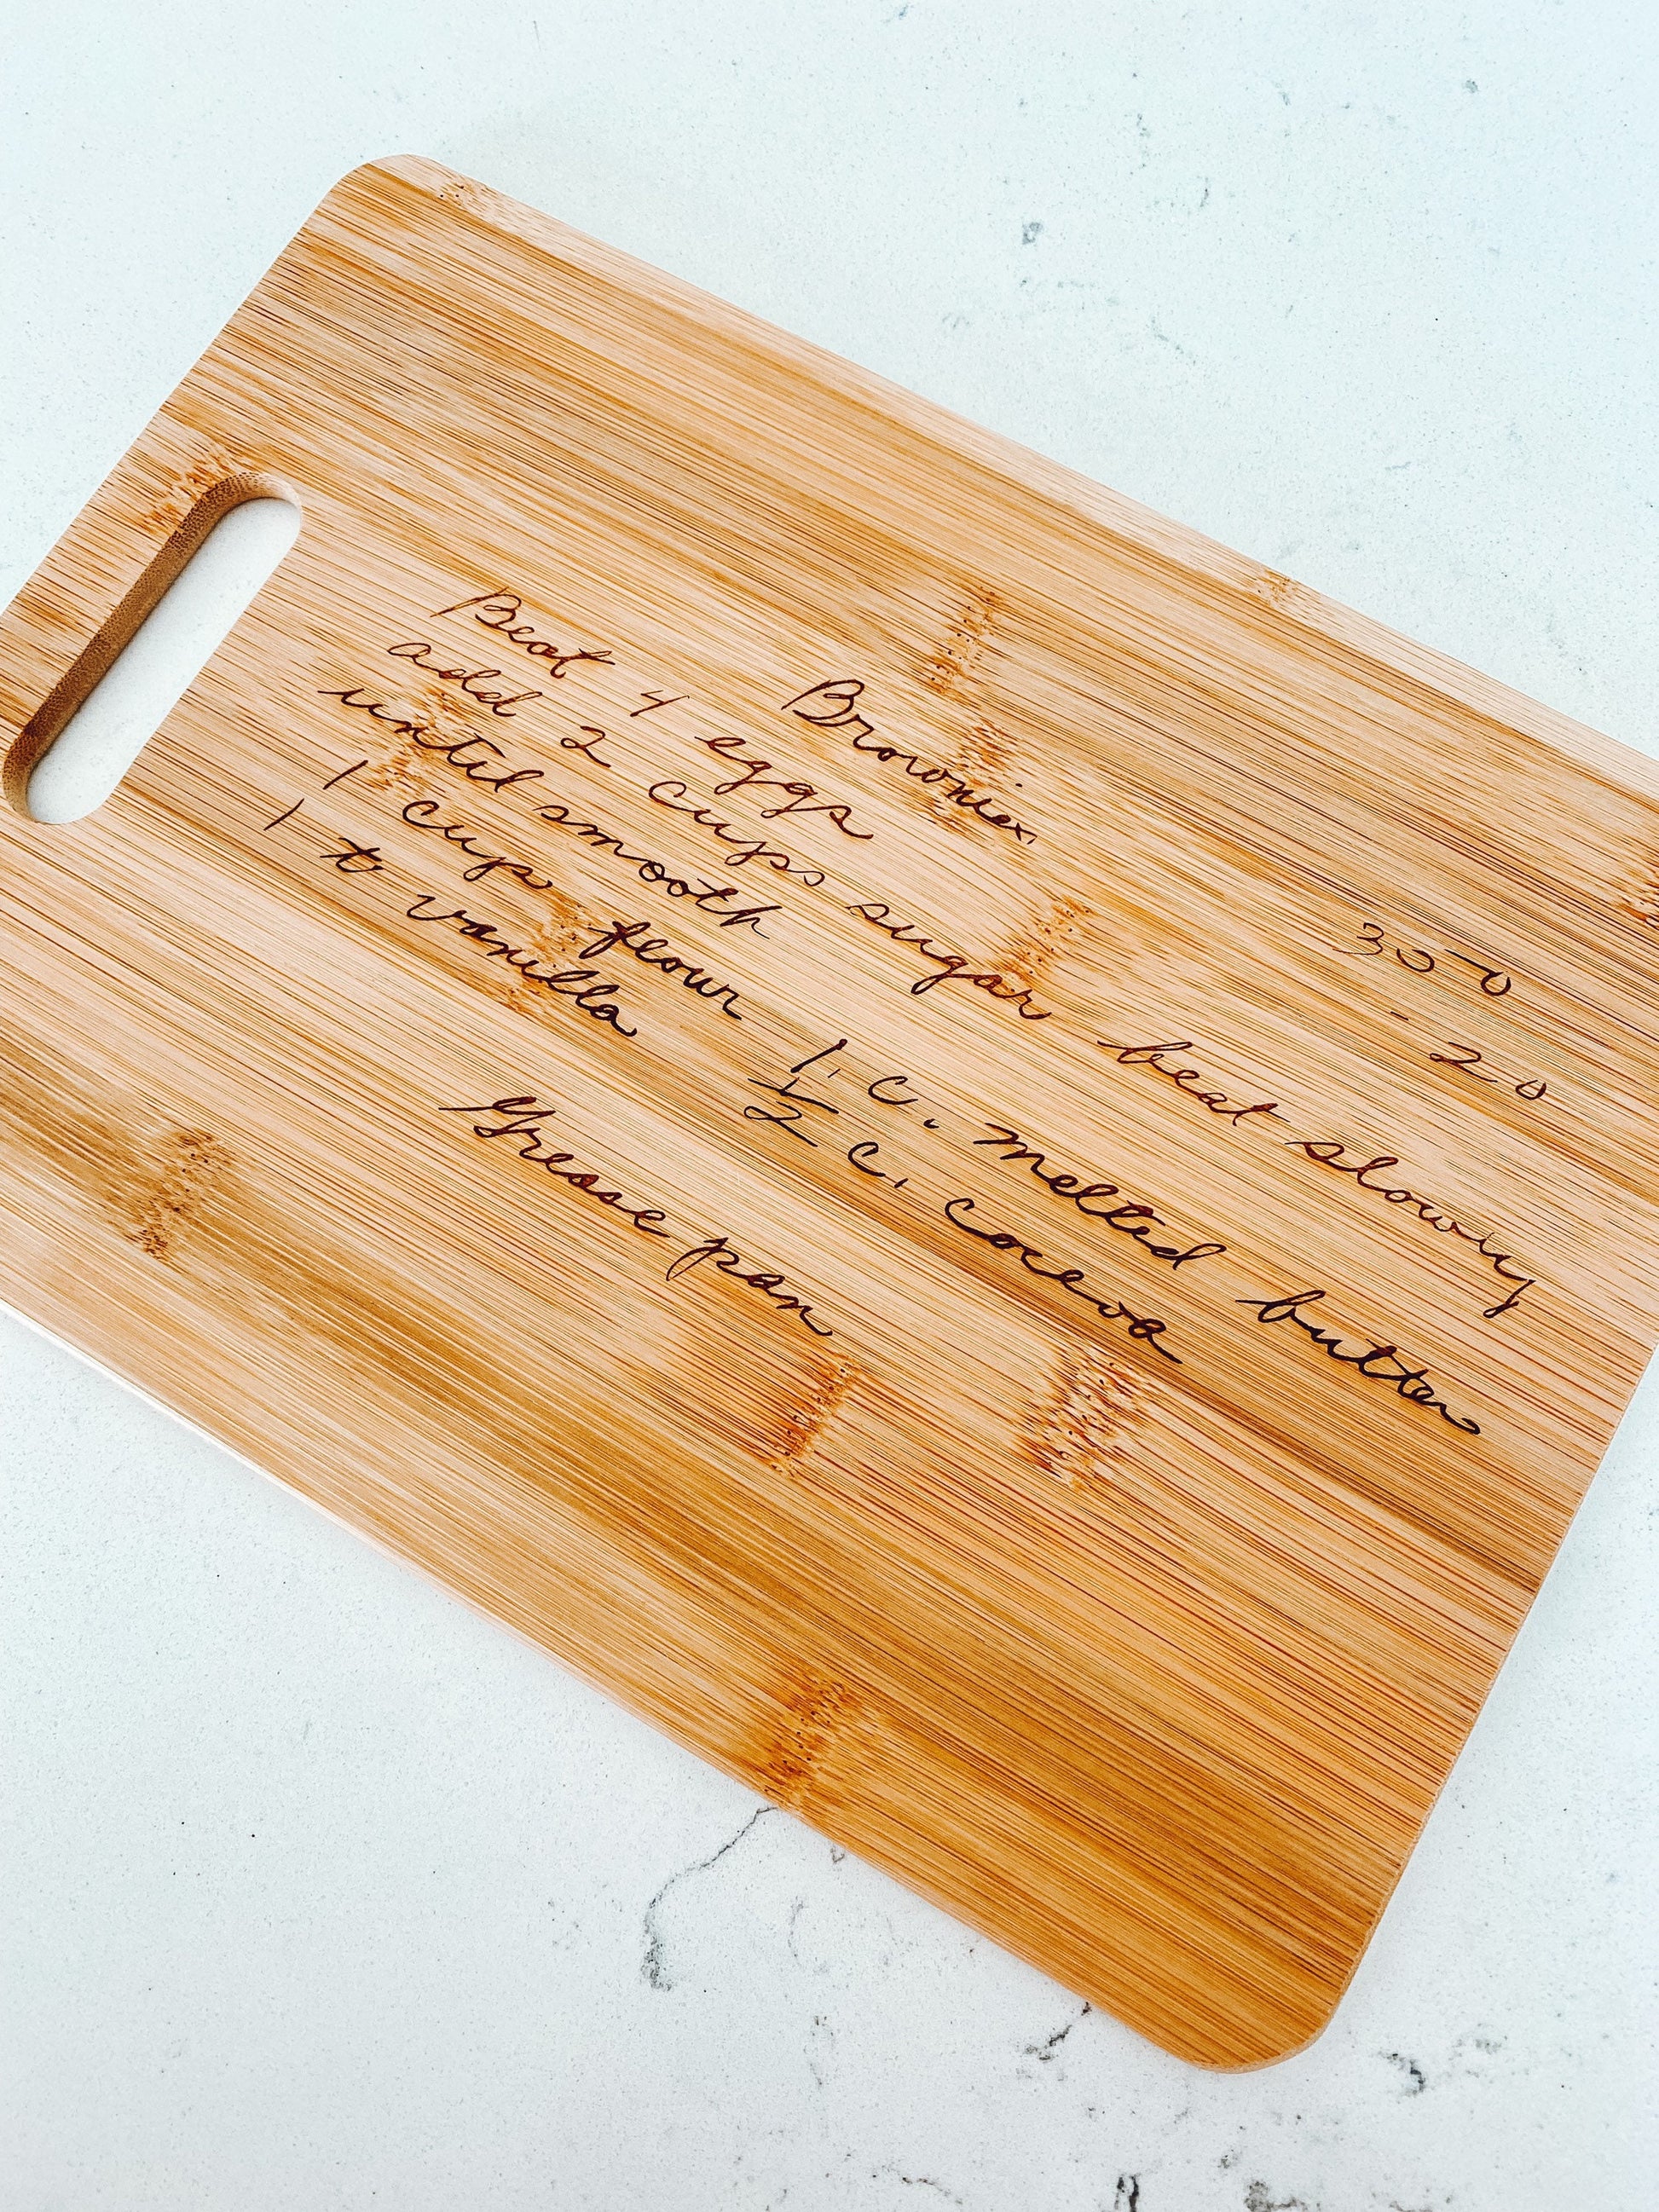 Brownies
350
- 20
Beat 4 eggs
add 2 cups sugar beat slowly
until smooth
1 cups flour 1. c. melted butter
1 t vanilla ½ c. cocoa
Grease pan